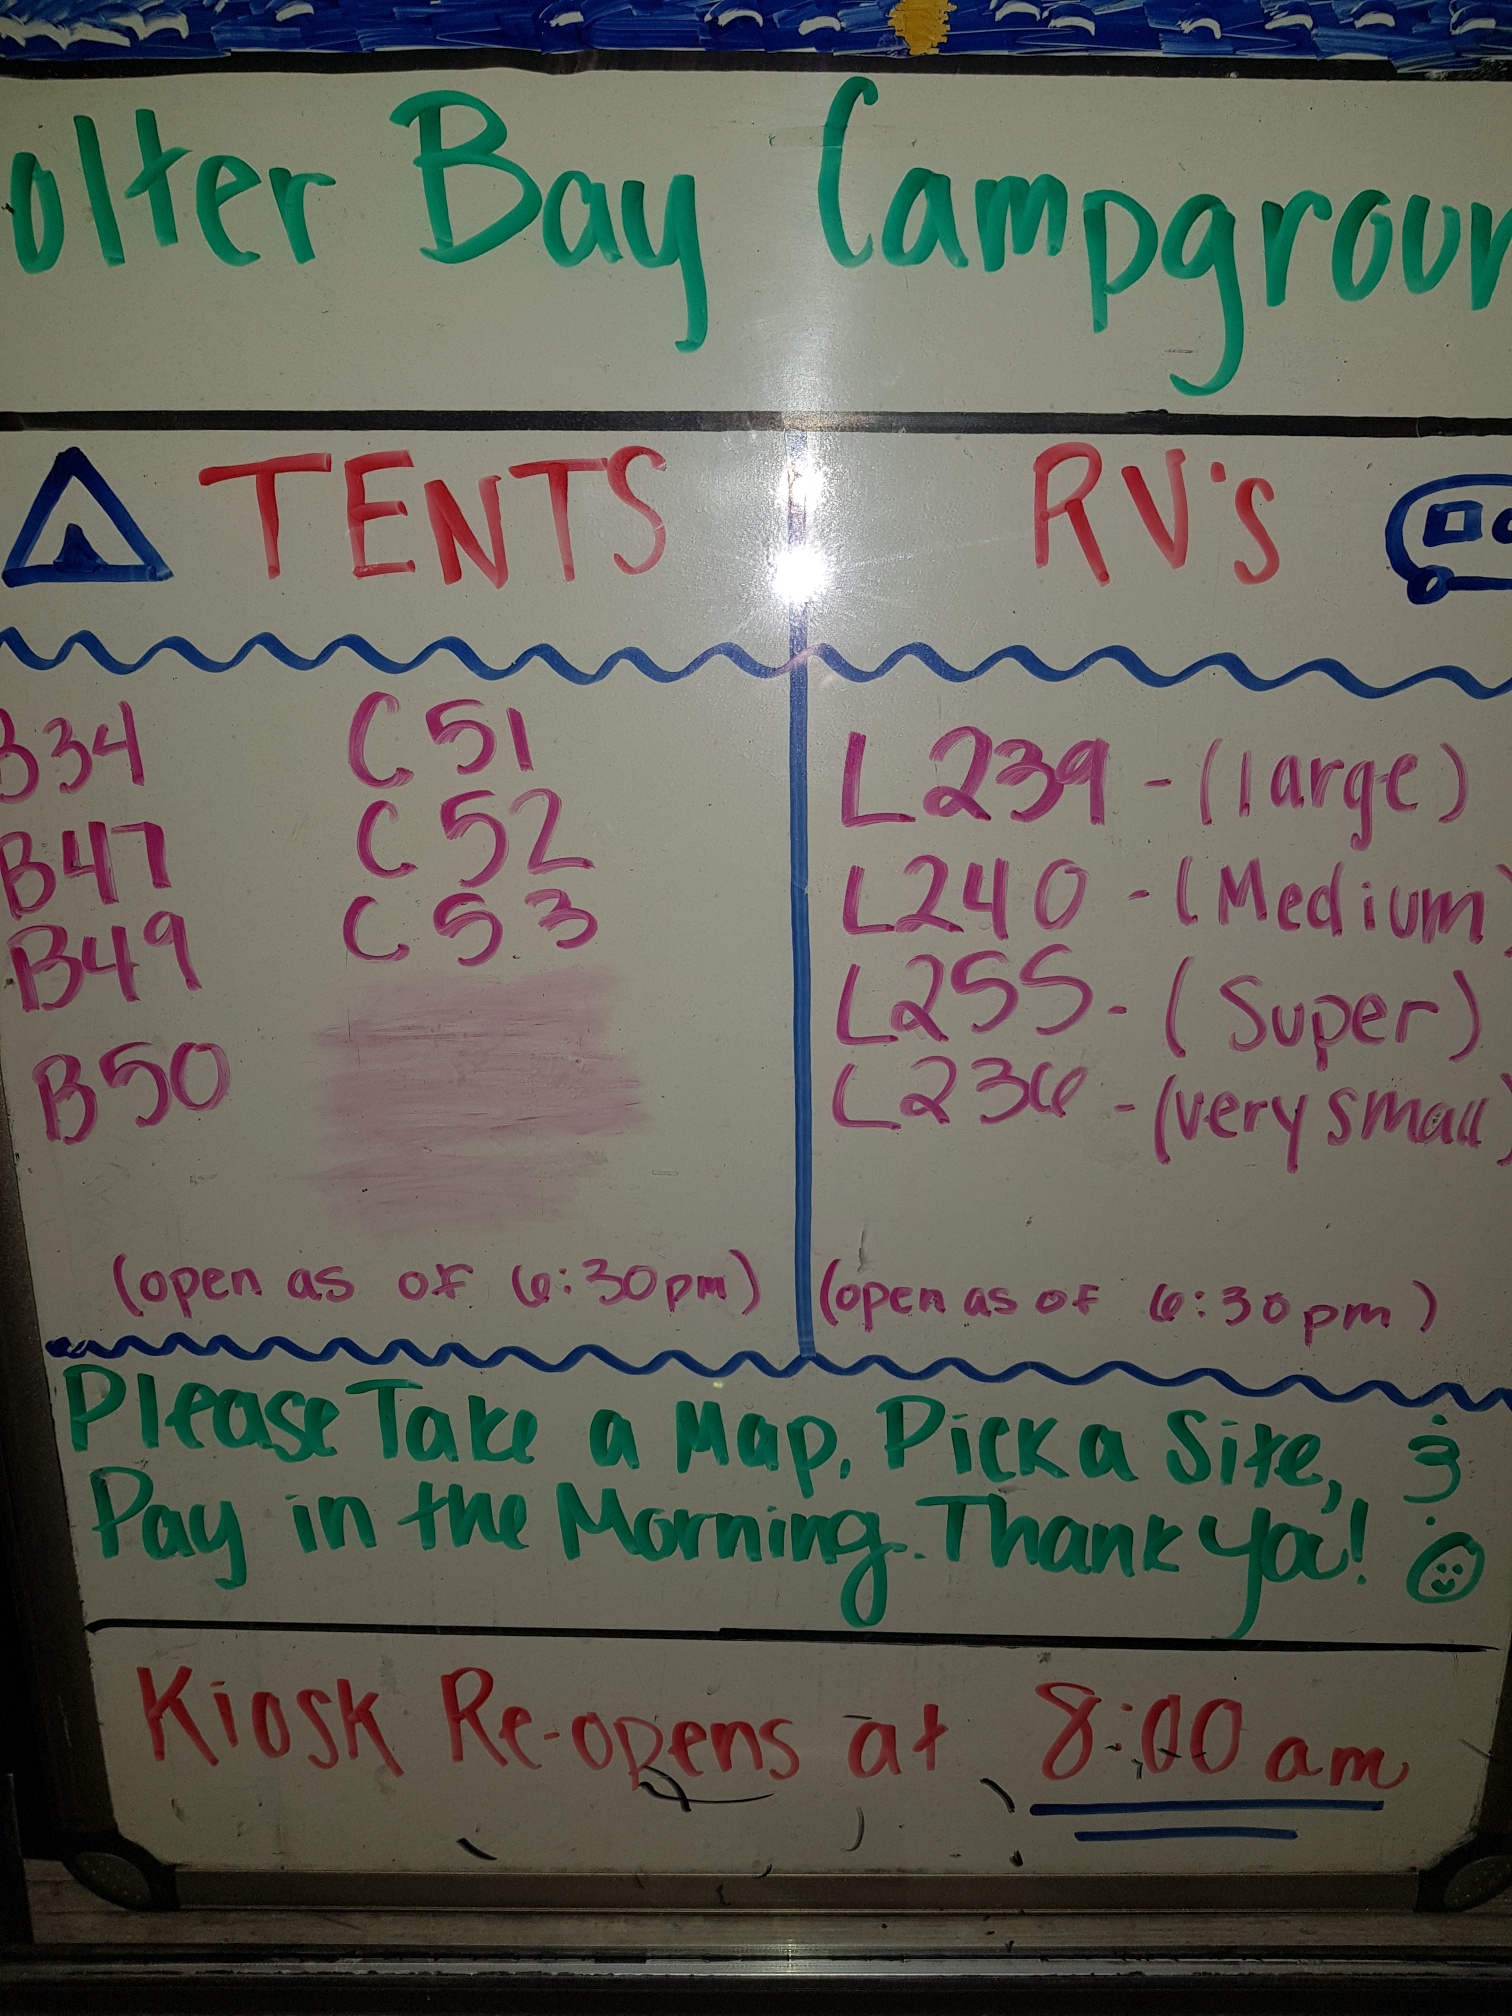 olter Bay Campgroun
TENTS
RV's
B34 C51
B47 C52
B49 C53
B50
(open as of 6:30pm)
L239 - (large)
L240 - (Medium)
L255 - (Super)
L236 - (very small)
(open as of 6:30pm)
Please Take a Map, Pick a Site, &
Pay in the Morning. Thank You!
Kiosk Re-opens at 8:00 am